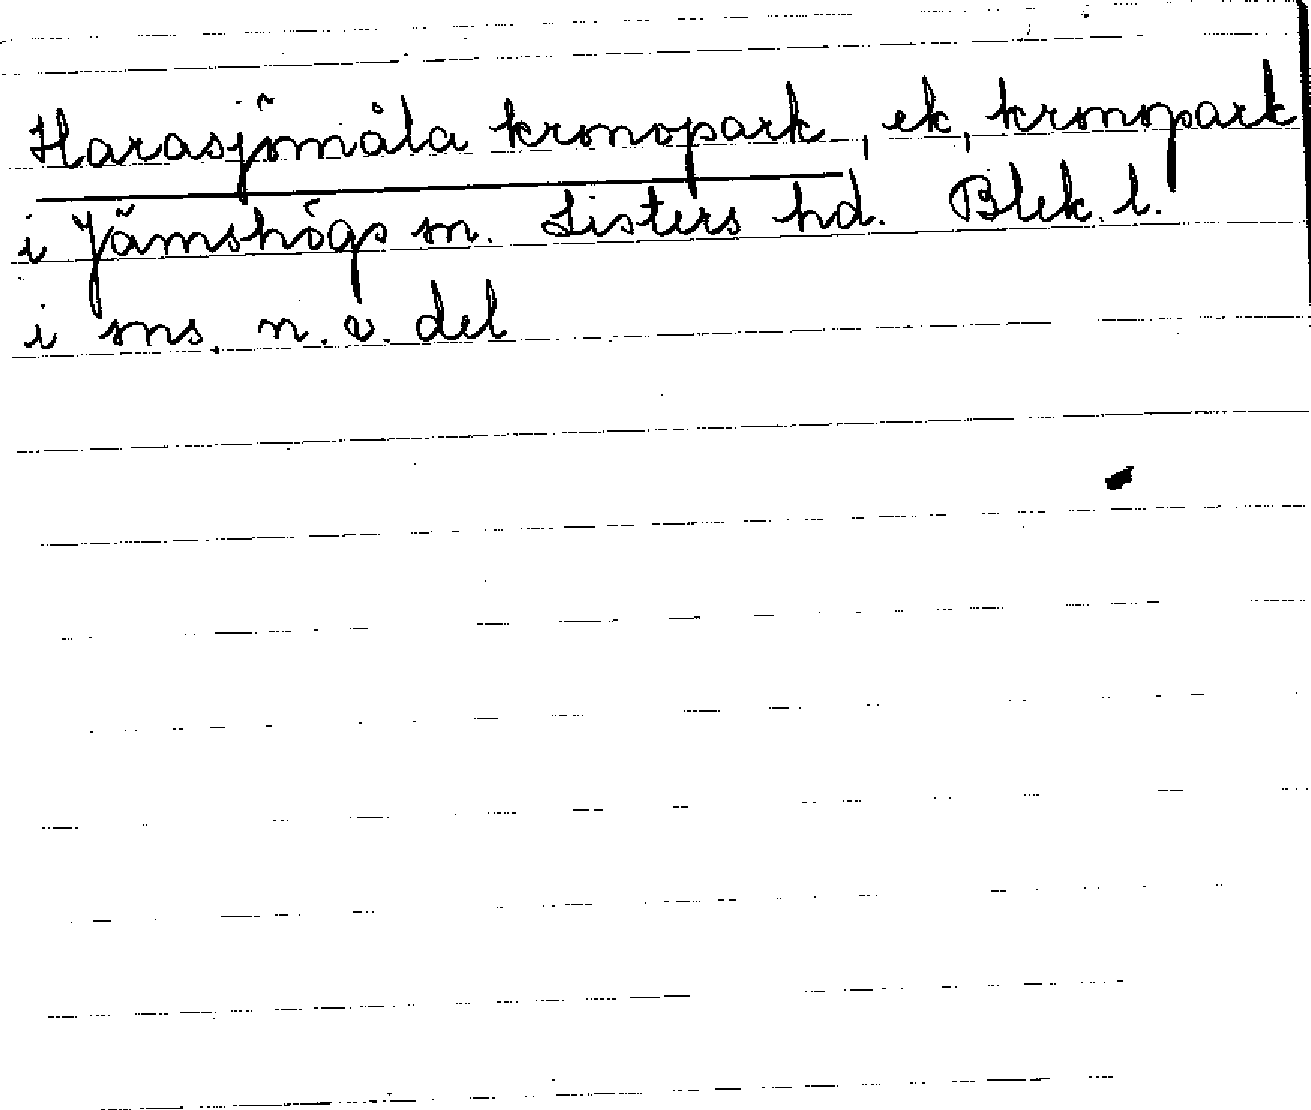 Harasjömåla kronopark, ek, kronopark
i Jämshögs sn. Listers hd. Blek. l.
i sns. n.v. del